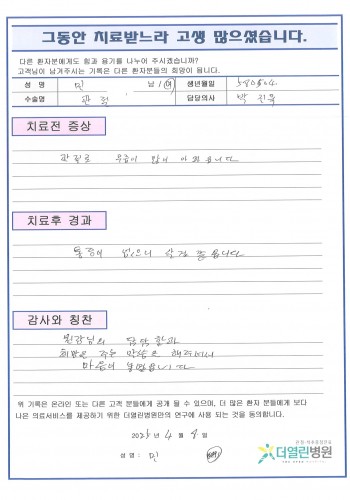 그동안 치료받느라 고생 많으셨습니다.
다른 환자분에게도 힘과 용기를 나누어 주시겠습니까?
고객님이 남겨주시는 기록은 다른 환자분들의 희망이 됩니다.
성 명 민 남 / 여 생년월일
수술명 관절 담당의사 박진욱
치료전 증상
관절로 무릎이 많이 아팠습니다
치료후 경과
통증이 없으니 살것 같습니다
감사와 칭찬
원장님의
희망을 주는 말씀을 해주셔서
마음이
위 기록은 온라인 또는 다른 고객 분들에게 공개 될 수 있으며, 더 많은 환자 분들에게 보다
나은 의료서비스를 제공하기 위한 더열린병원만의 연구에 사용 되는 것을 동의합니다.
4 월
성 명 : 민
더열린병원